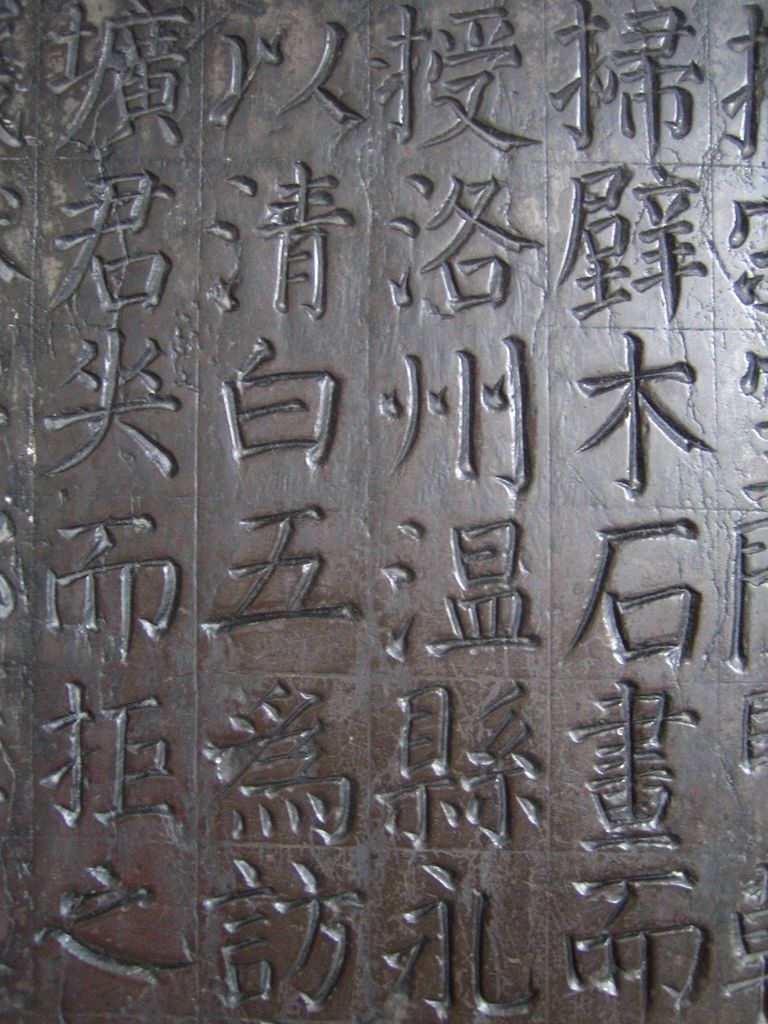 掃壁木石畫而
授洛州温縣永
以清白五為訪
壙君𠔏而拒之